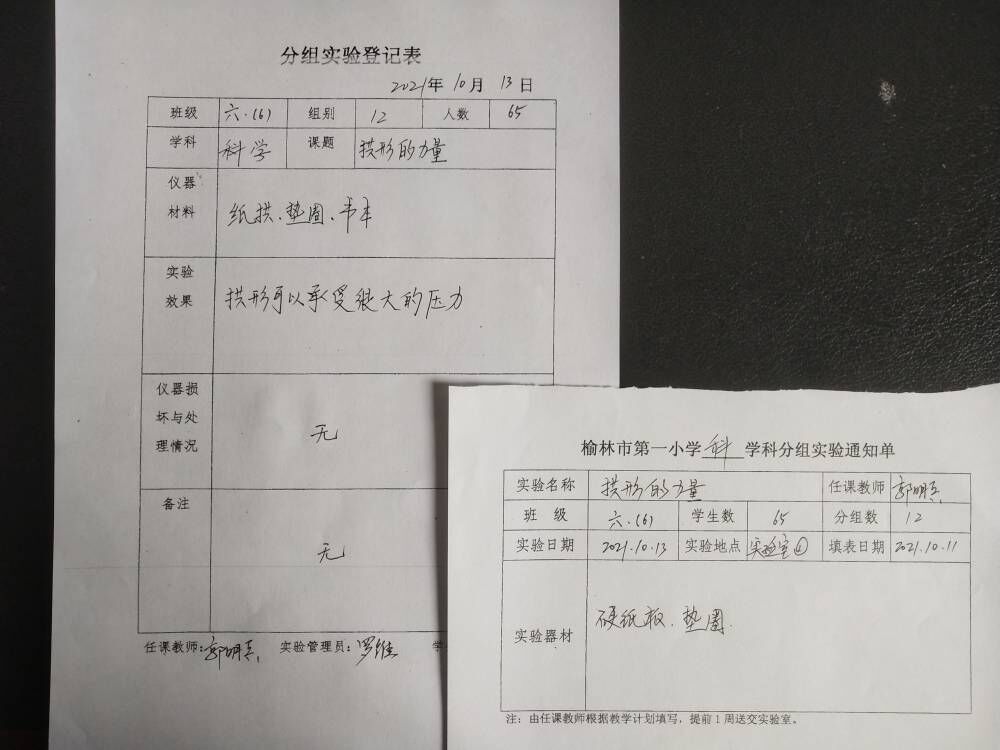 分组实验登记表
2021年 10月 13日
班级 六.(6) 组别 12 人数 65
学科 科学 课题 拱形的力量
仪器材料 纸拱、垫圈、书本
实验效果 拱形可以承受很大的压力
仪器损坏与处理情况 无
备注 无
任课教师: 郭明 实验管理员: 罗维 学
榆林市第一小学 科 学科分组实验通知单
实验名称 拱形的力量 任课教师 郭明
班级 六.(6) 学生数 65 分组数 12
实验日期 2021.10.13 实验地点 实验室④ 填表日期 2021.10.11
实验器材 硬纸板、垫圈.
注: 由任课教师根据教学计划填写, 提前1周送交实验室。